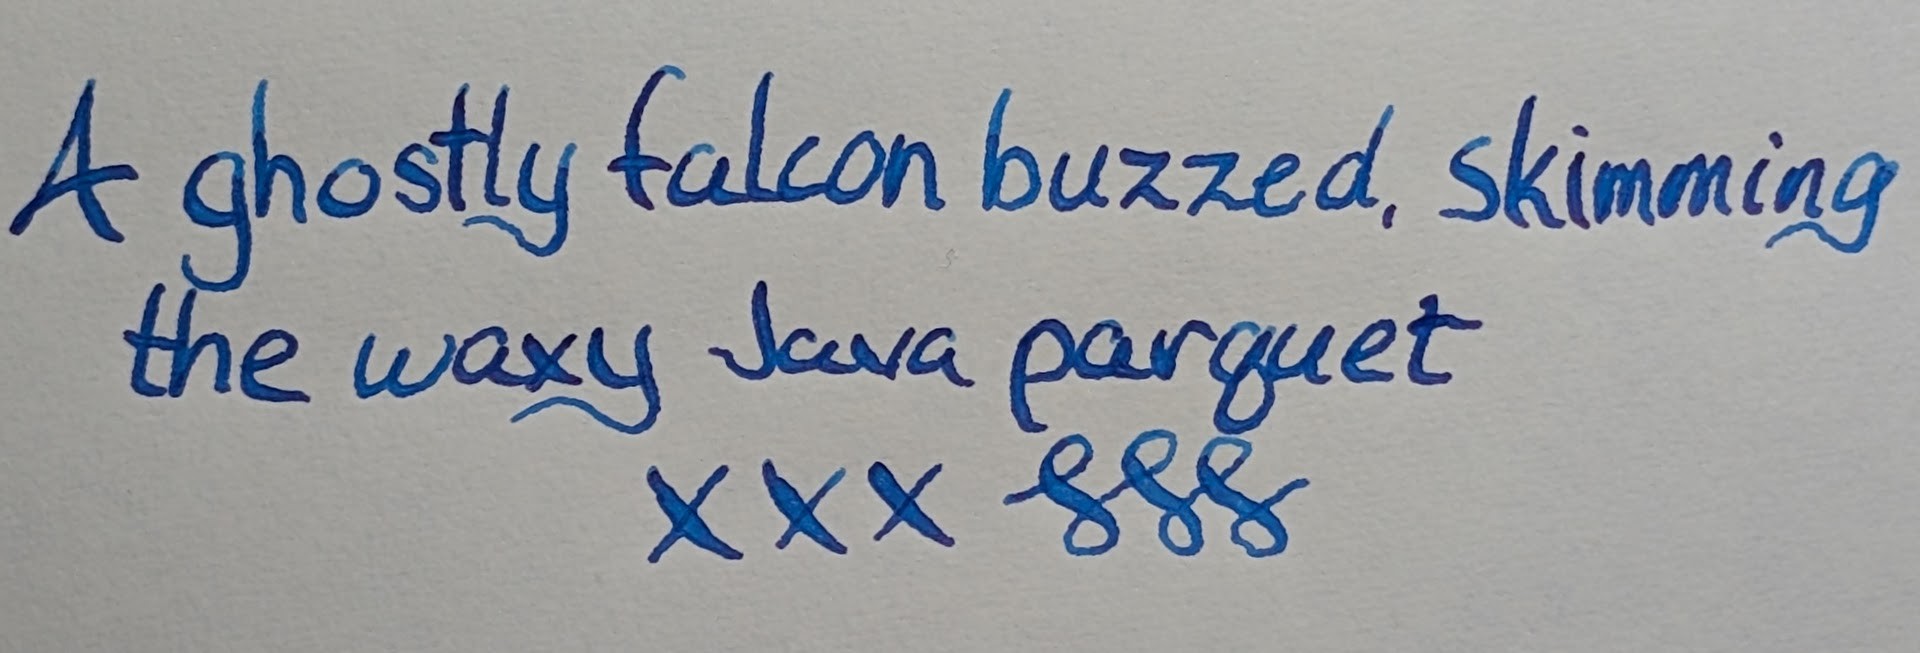 A ghostly falcon buzzed, skimming
the waxy Java parquet
x x x 888